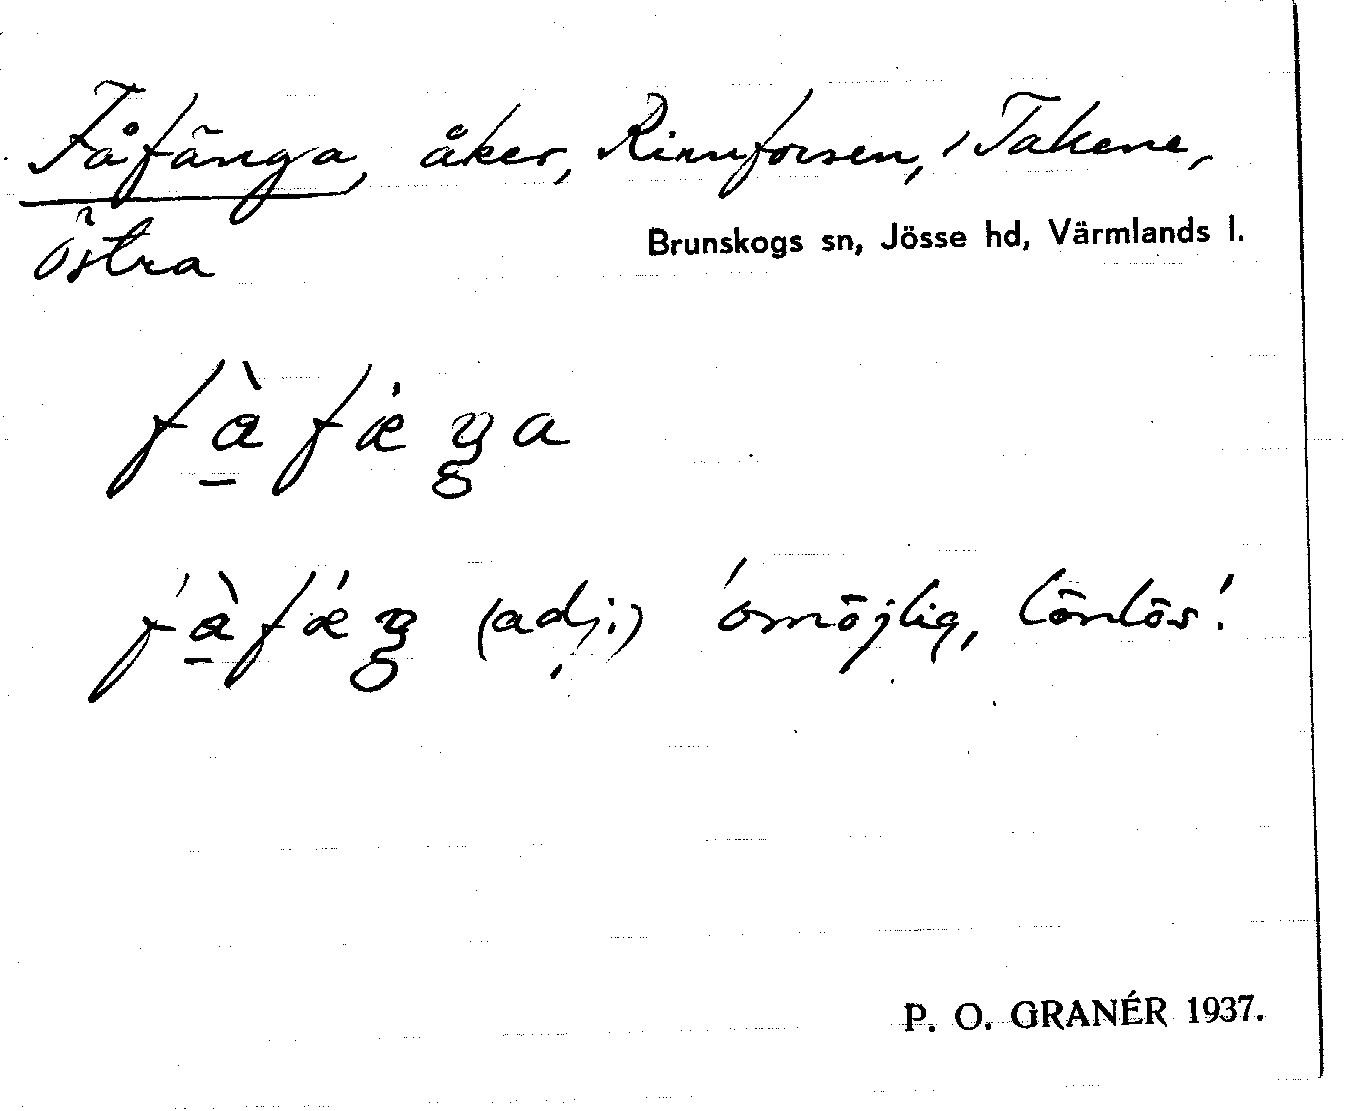 Fåfänga, åker, Rinnforsen, Takene,
Östra
Brunskogs sn, Jösse hd, Värmlands l.
(adj.) 'omöjlig, lönlös'.
P. O. GRANÉR 1937.